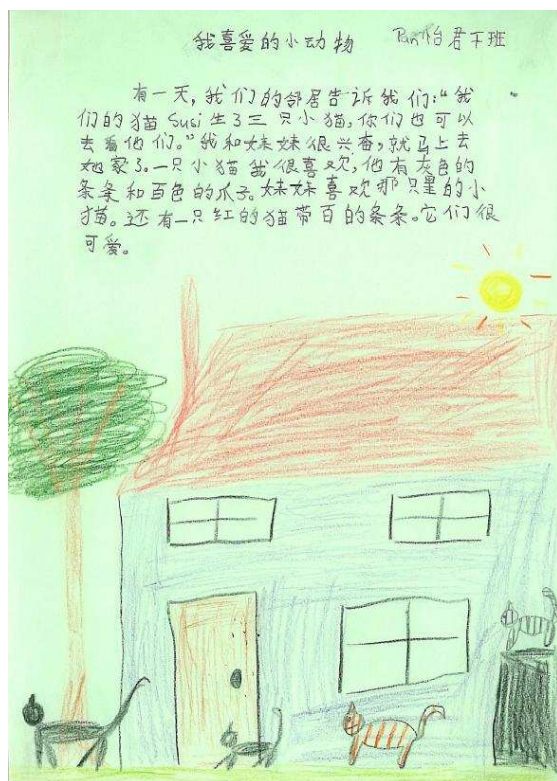 我喜爱的小动物 Pan怡君 下班
有一天,我们的邻居告诉我们:“我
们的猫 Susi 生了三只小猫,你们也可以
去看他们。”我和妹妹很兴奋,就马上去
她家了。一只小猫我很喜欢,他有灰色的
条条和百色的爪子。妹妹喜欢那只黑的小
猫。还有一只红的猫带百的条条。它们很
可爱。